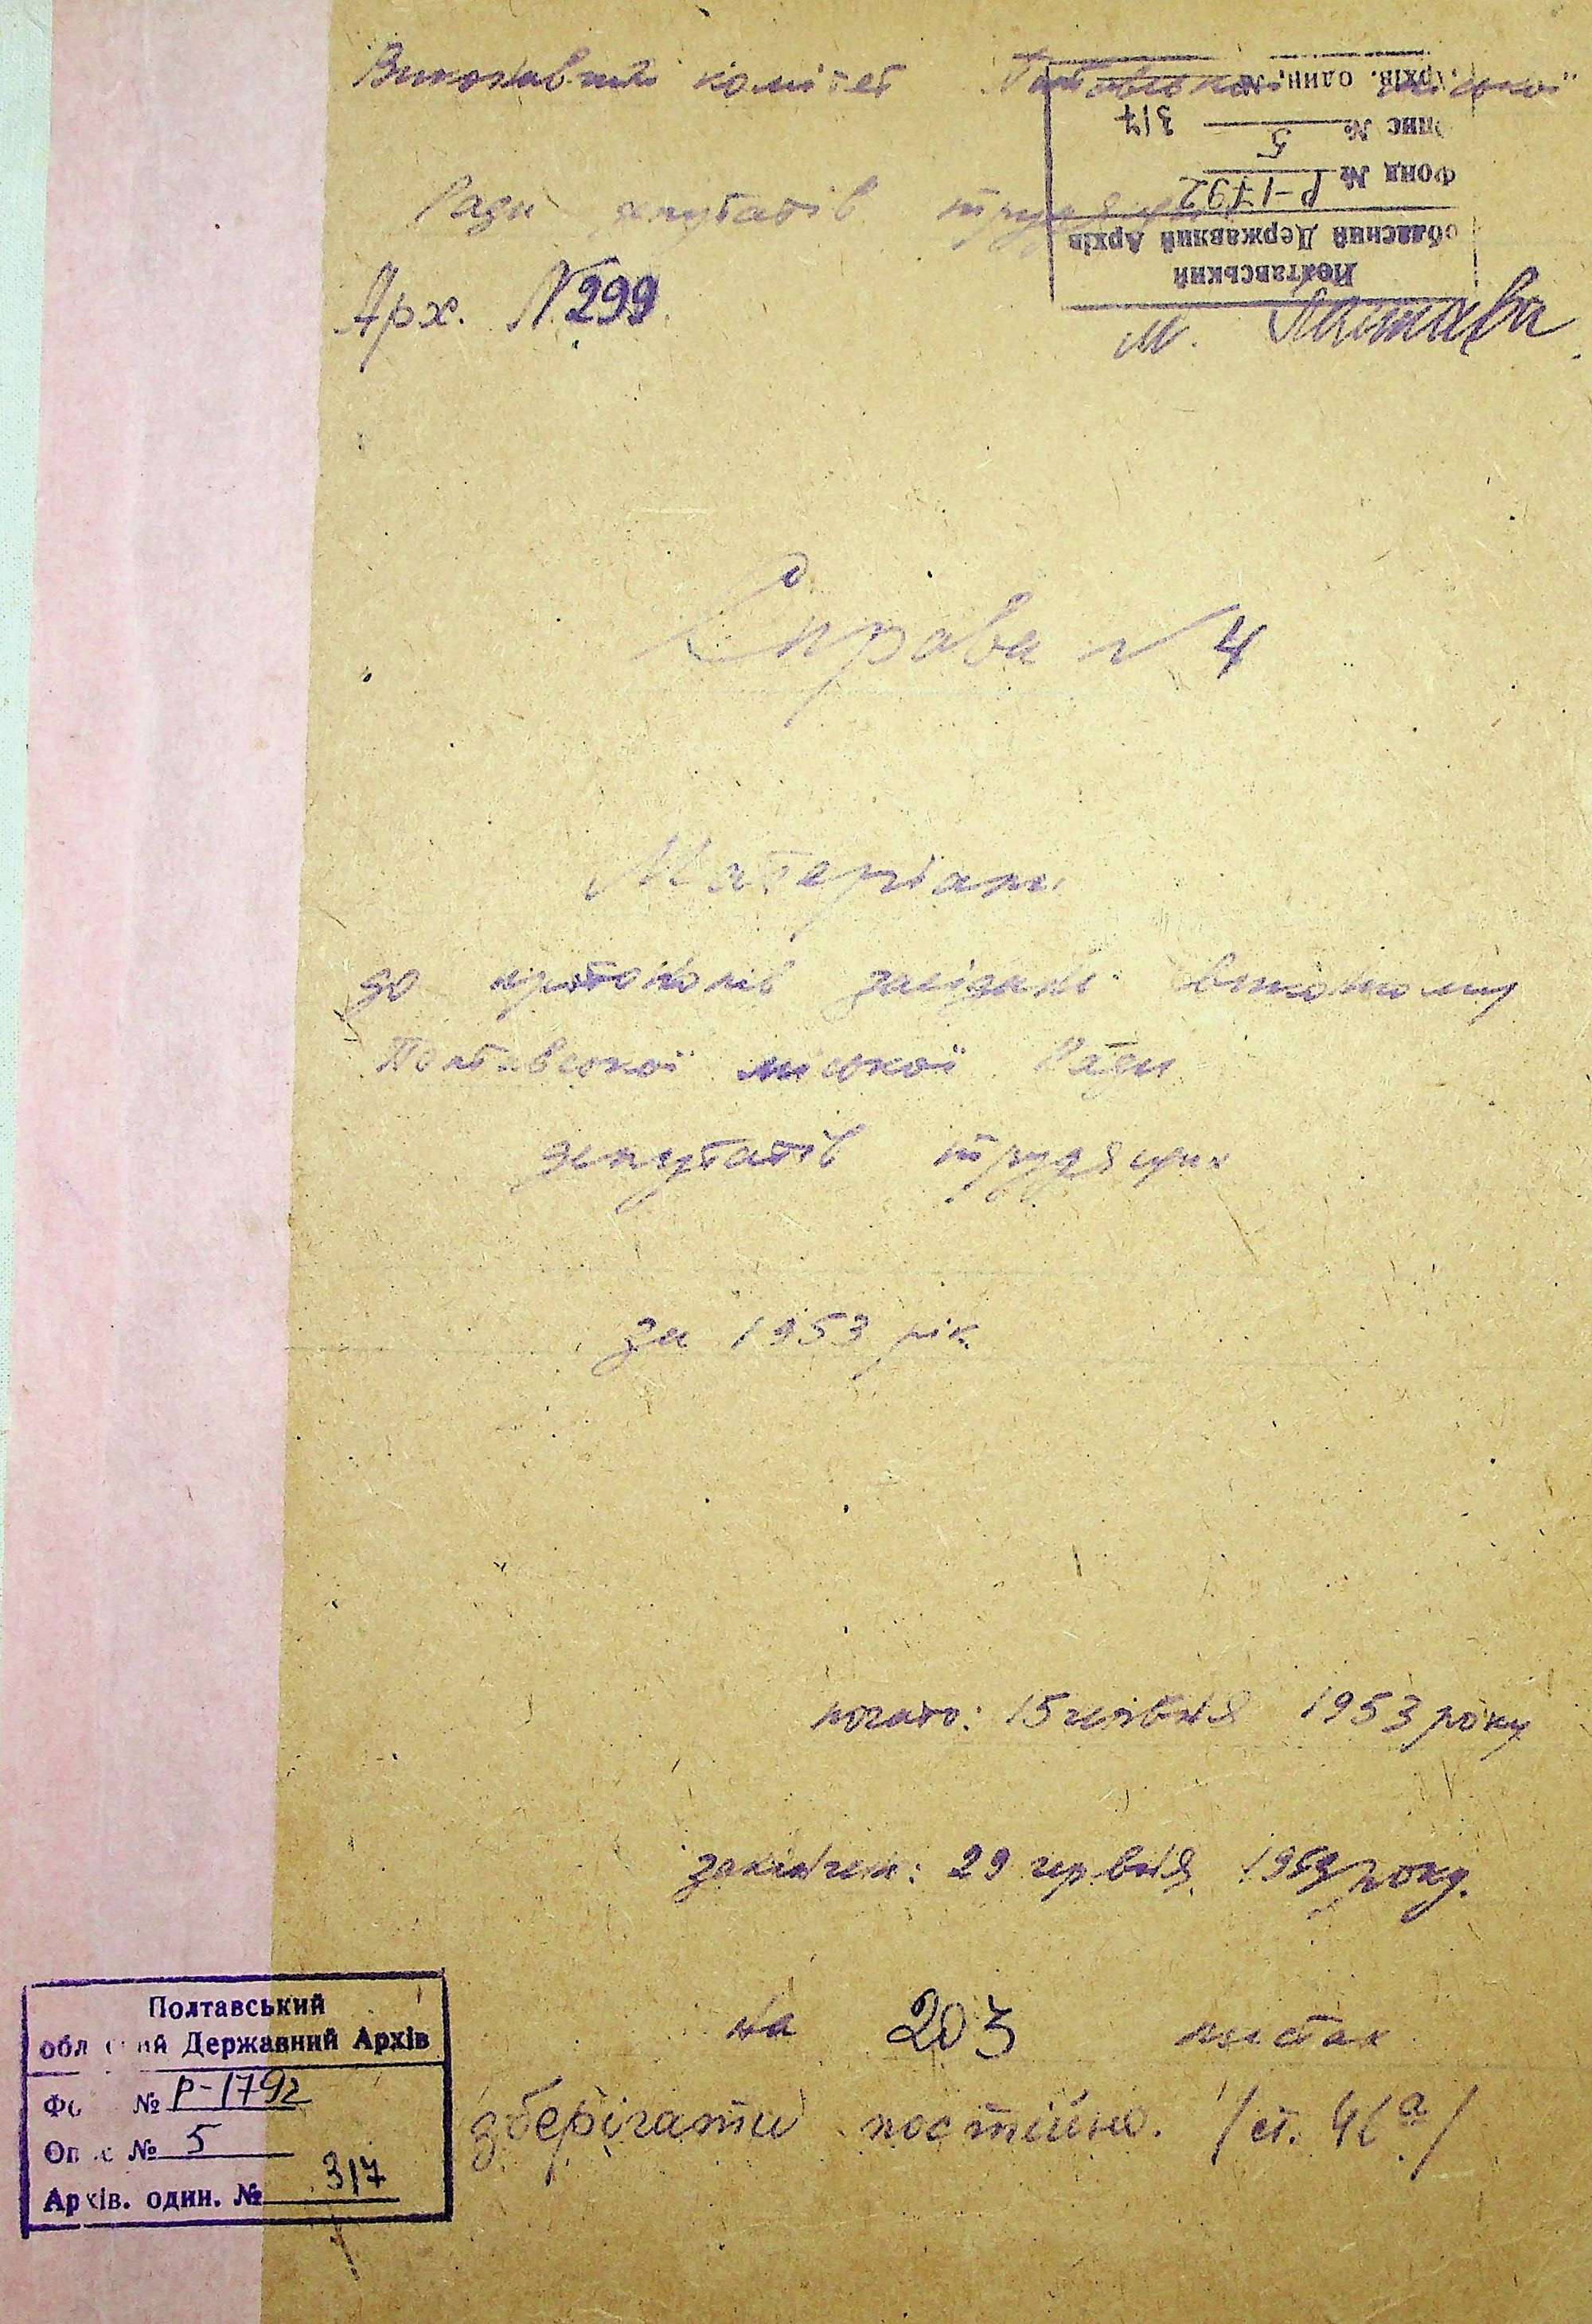 Виконавчий комітет Полтавської міської
Ради депутатів трудящих
Арх. №299
м. Полтава
Полтавський
обласний Державний Архів
Фонд № Р-1792
Опис № 5
Архів. один. № 317
Справа № 4
Матеріали
до протоколів засідань виконкому
Полтавської міської Ради
депутатів трудящих
за 1953 рік
почато: 15 1953 року
закінчен: 29 червня 1953 року.
на 203 листах
зберігати постійно. /ст. 46а/
Полтавський
обл ий Державний Архів
Фо № Р-1792
Оп с № 5
Архів. один. № 317